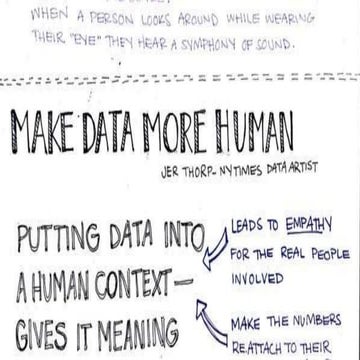 WHEN A PERSON LOOKS AROUND WHILE WEARING
THEIR "EYE" THEY HEAR A SYMPHONY OF SOUND.
MAKE DATA MORE HUMAN
JER THORP-NYTIMES DATA ARTIST
PUTTING DATA INTO
A HUMAN CONTEXT—
GIVES IT MEANING
LEADS TO EMPATHY
FOR THE REAL PEOPLE
INVOLVED
MAKE THE NUMBERS
RE-ATTACH TO THEIR